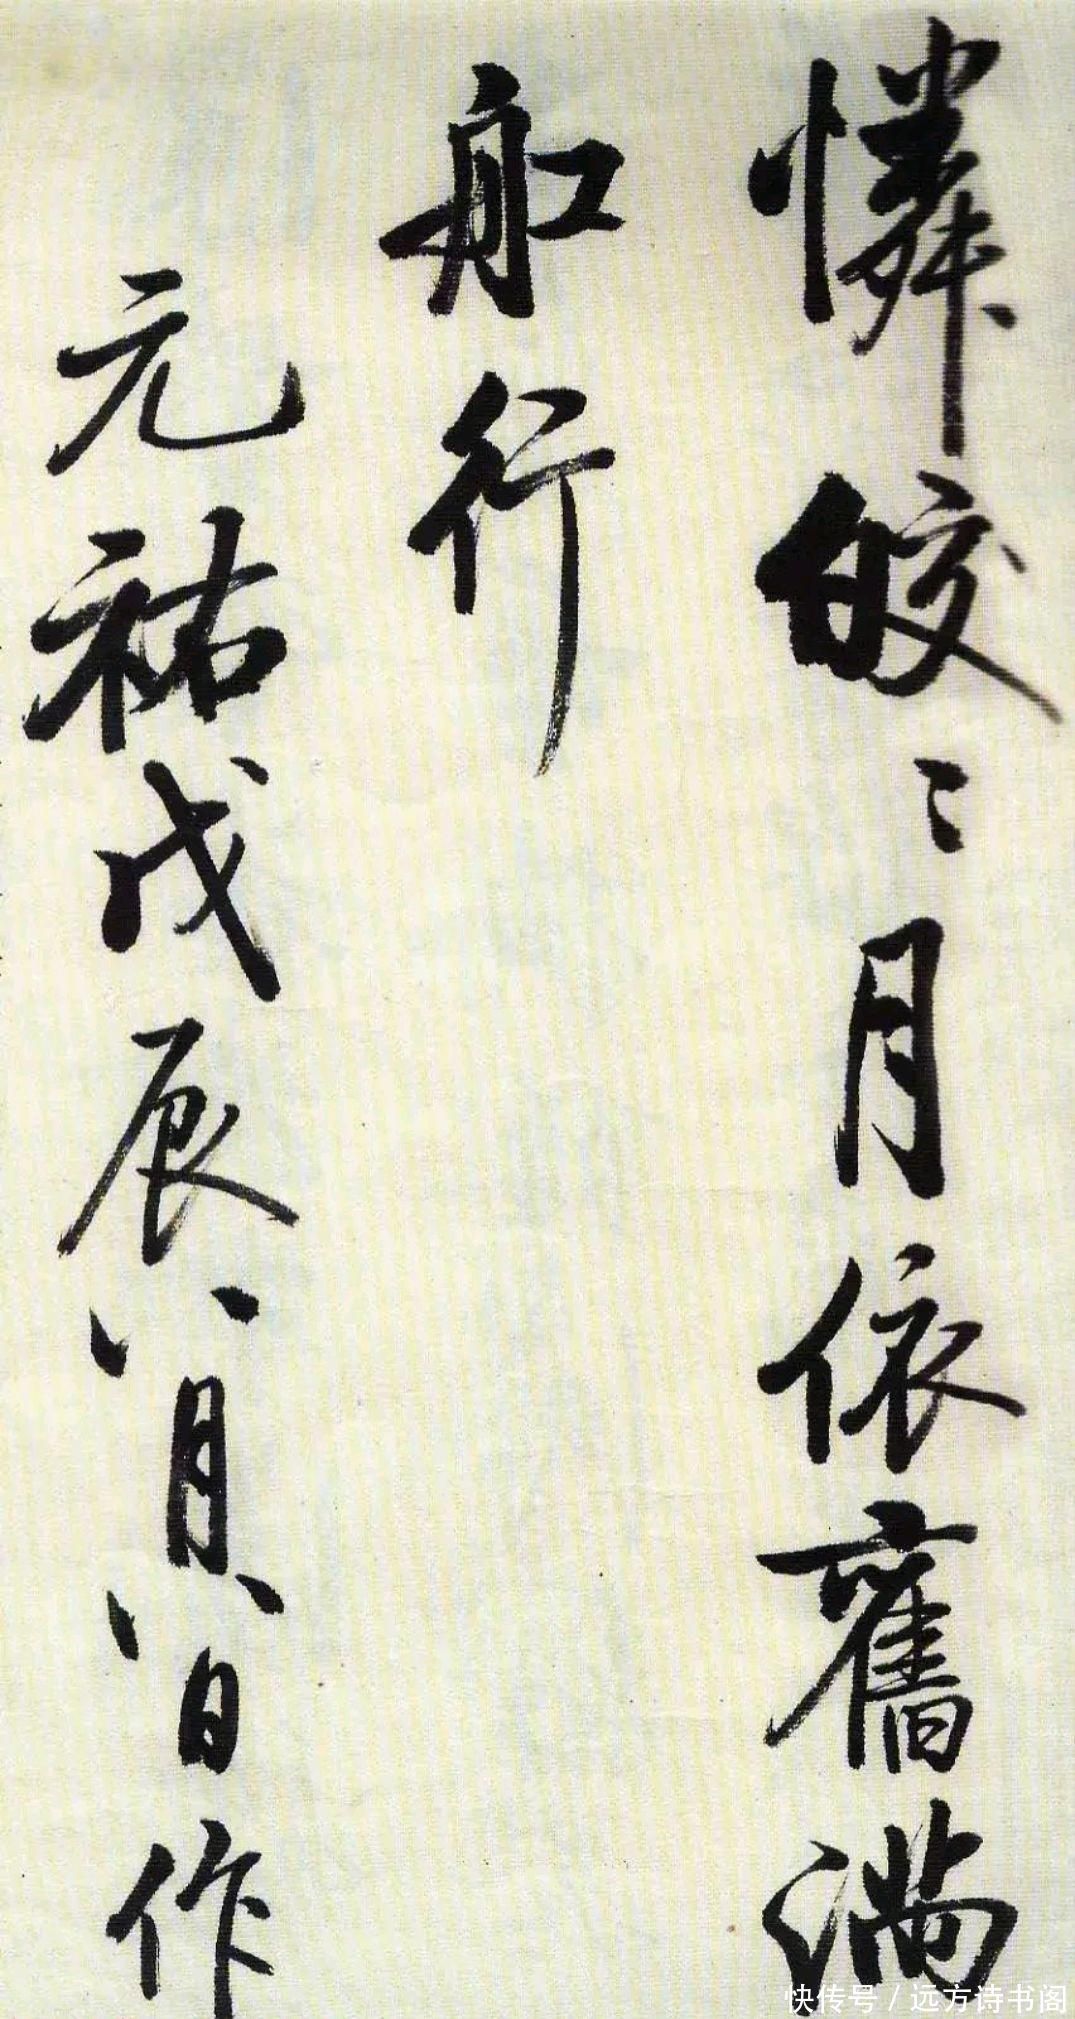 憐皎〻月依舊滿
舡行
元祐戊辰八月八日作
快传号 / 远方诗书阁